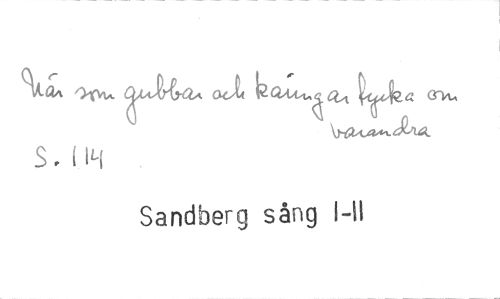 När som gubbar och käringar tycka om
varandra
S. 114
Sandberg sång I-II